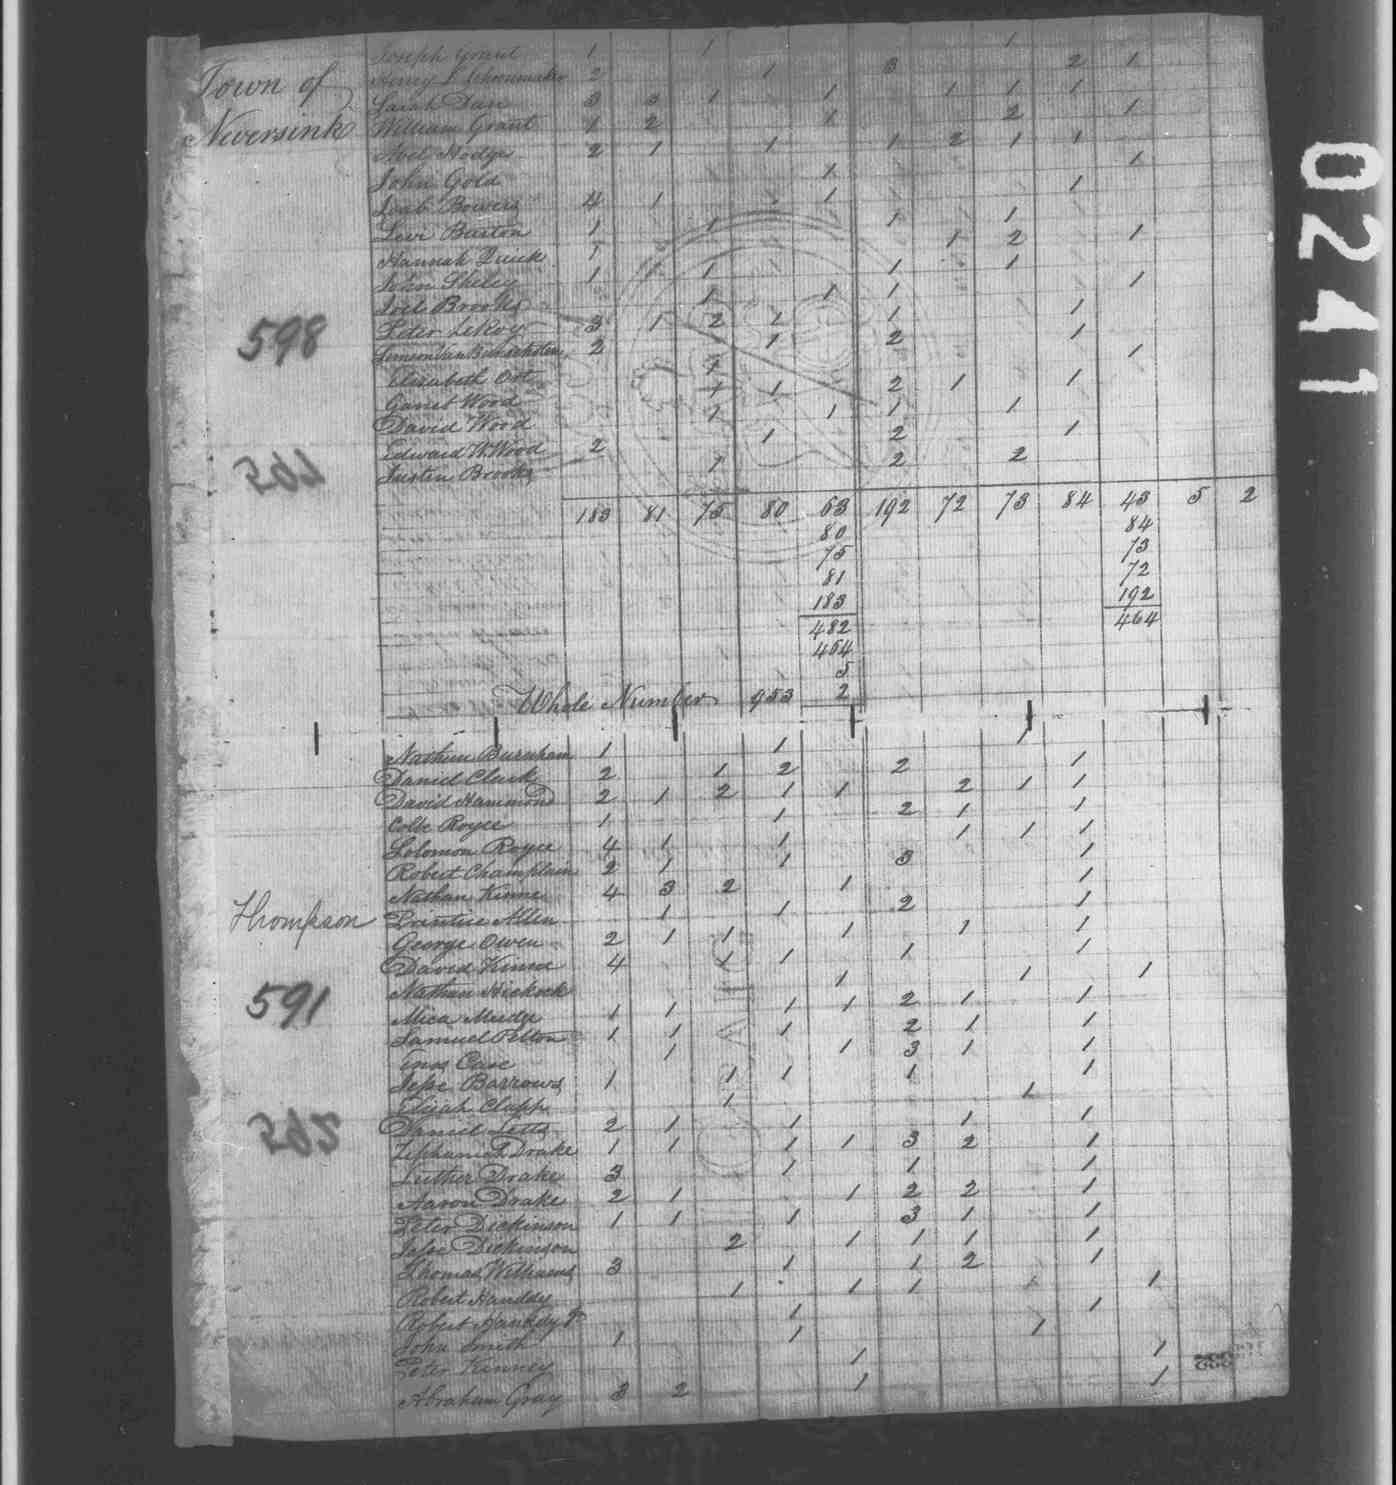 Town of
Neversink
Joseph Grant 1 1 1
Henry L Schoonmaker 2 1 3 2 1
Sarah Dan 3 3 1 1 1 1 1
William Grant 1 2 1 2 1
Abel Hodge 2 1 1 1 2 1 1
John Gold 1 1
Bowers 4 1 1 1
Levi Barton 1 1 1 1
Hannah Quick 1 1 2 1
John Sheley 1 1 1 1 1
Joel Brooks 1 1 1 1
Peter LeRoy 3 1 2 1 1 1
598
2 1 2 1
Elizabeth Ort 1 1
Garret Wood 1 1 2 1 1
David Wood 1 1 1 1
Edward W. Wood 2 1 2 1
Justin Brooks 1 2 2
564
183 81 75 80 63 192 72 73 84 43 5 2
80 84
75 73
81 72
183 192
482 464
464
5
Whole Number 953 2
Nathan Burnham 1 1 1
Daniel Clark 2 1 2 2 1
David Hammond 2 1 2 1 1 2 1 1
Colbe Royce 1 1 2 1 1
Solomon Royce 4 1 1 1 1 1
Robert Champlain 2 1 1 3 1
Nathan Kinne 4 3 2 1 1
Thompson
Prentice Allen 1 1 2 1
George Owen 2 1 1 1 1 1
David Kinne 4 1 1 1 1
Nathan Hickock 1 1 1
591
Mica Mudge 1 1 1 1 2 1 1
Samuel Pelton 1 1 1 2 1 1
Enos Case 1 1 3 1 1
Jesse Barrows 1 1 1 1 1
Elijah Clapp 1 1
Daniel Letts 2 1 1 1 1
Zephaniah Drake 1 1 1 1 3 2 1
562
Luther Drake 3 1 1 1
Aaron Drake 2 1 1 2 2 1
Peter Dickinson 1 1 1 3 1 1
Jesse Dickinson 2 1 1 1 1
Thomas Williams 3 1 1 2 1
Robert Handdy 1 1 1 1 1
Robert Handdy Jr 1 1
John Smith 1 1 1
Peter Kinney 1 1
Abraham Gray 3 2 1 1
0241